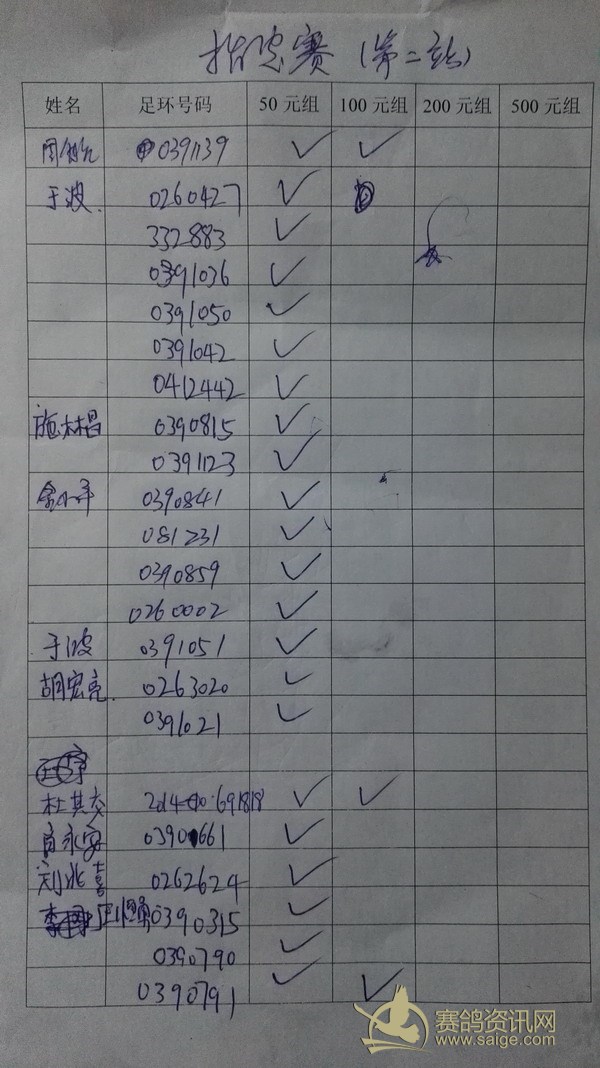 指定赛（第二站）
姓名 足环号码 50元组 100元组 200元组 500元组
0391139 ✓ ✓
于波 0260427 ✓
332883 ✓
0391036 ✓
0391050 ✓
0391042 ✓
0412442 ✓
施林昌 0390815 ✓
0391123 ✓
金小平 0390841 ✓
081231 ✓
0390859 ✓
0260002 ✓
于波 0391051 ✓
胡宏亮 0263020 ✓
0391021 ✓
杜其交 2014-10-691818 ✓ ✓
永安 0390661 ✓
刘兆喜 0262624 ✓
0390315 ✓
0390790 ✓
0390791 ✓ ✓
赛鸽资讯网
www.saige.com